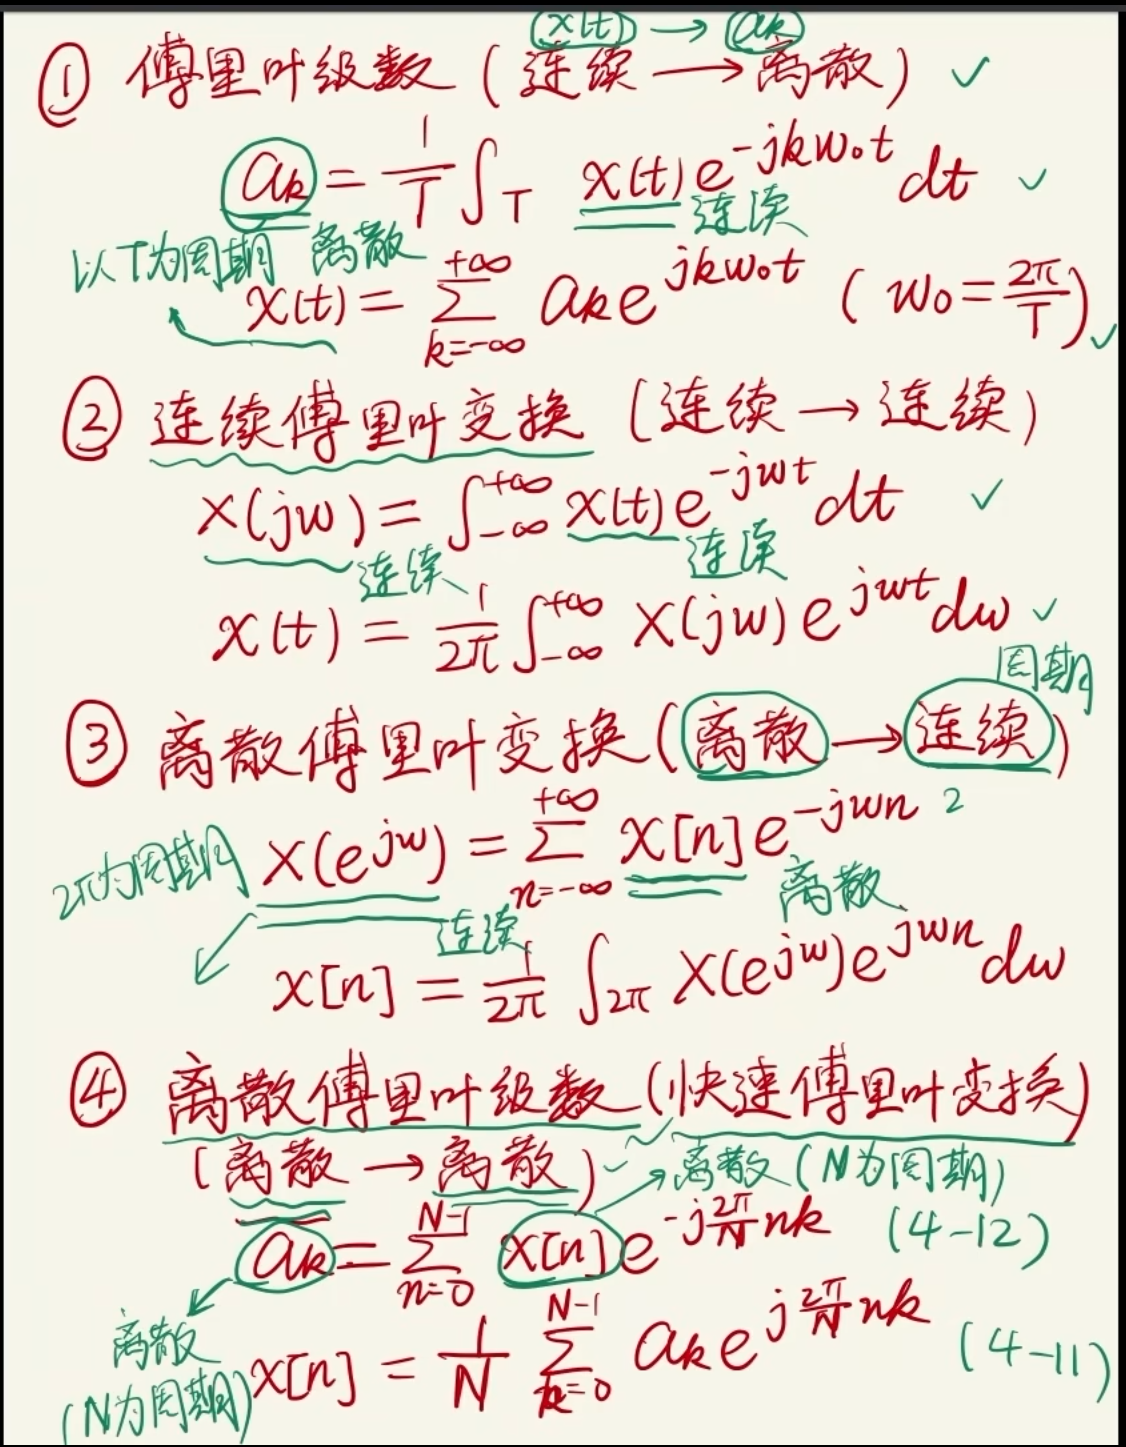 x(t) → ak
① 傅里叶级数 (连续 → 离散) ✓
ak = 1/T ∫T x(t) e^{-jkw₀t} dt ✓
连续
以T为周期 离散
x(t) = ∑_{k=-∞}^{+∞} ak e^{jkw₀t} (w₀ = 2π/T) ✓
② 连续傅里叶变换 (连续 → 连续)
X(jw) = ∫_{-∞}^{+∞} x(t) e^{-jwt} dt ✓
连续 连续
x(t) = 1/2π ∫_{-∞}^{+∞} X(jw) e^{jwt} dw ✓
周期
③ 离散傅里叶变换 (离散 → 连续)
X(e^{jw}) = ∑_{n=-∞}^{+∞} x[n] e^{-jwn} 2
2π为周期 连续 离散
x[n] = 1/2π ∫_{2π} X(e^{jw}) e^{jwn} dw
④ 离散傅里叶级数 (快速傅里叶变换)
(离散 → 离散) ✓ 离散 (N为周期)
ak = ∑_{n=0}^{N-1} x[n] e^{-j2π/N nk} (4-12)
离散
(N为周期)
x[n] = 1/N ∑_{k=0}^{N-1} ak e^{j2π/N nk} (4-11)